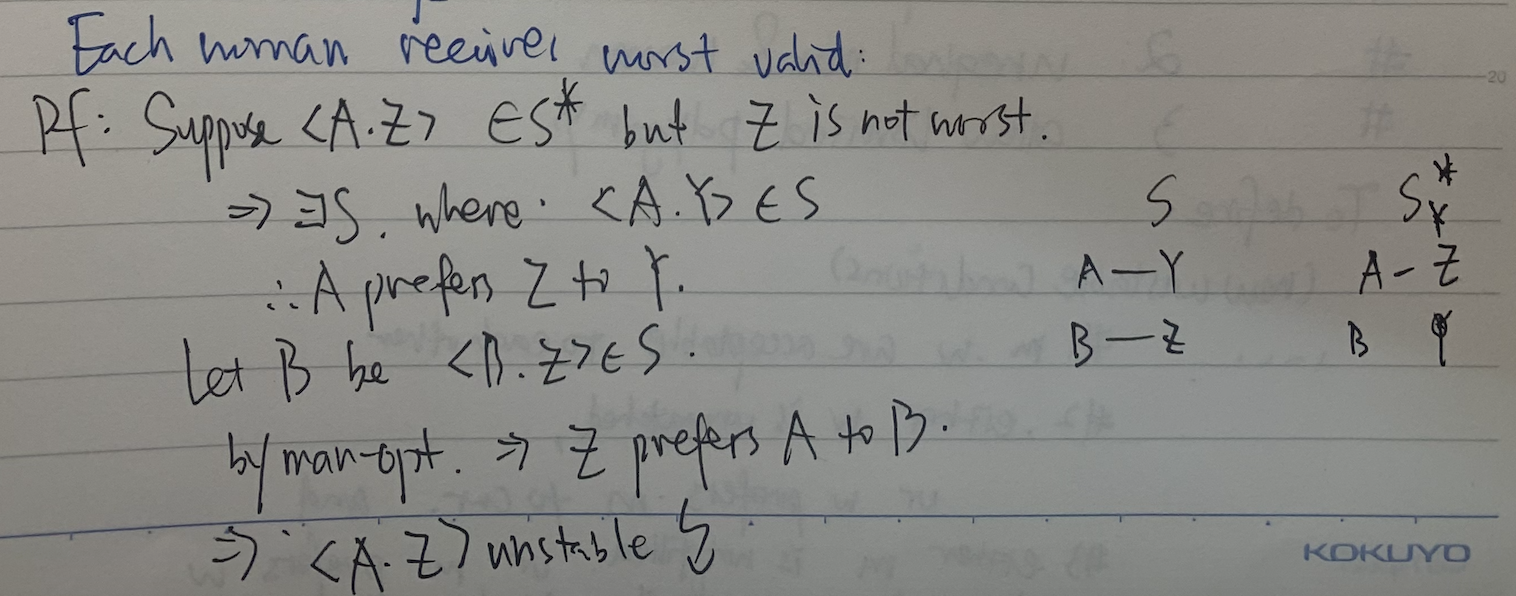 Each woman receives worst valid:
Pf: Suppose <A.Z> ∈S* but Z is not worst.
⇒ ∃S, where <A.Y> ∈ S
∴ A prefers Z to Y.
Let B be <B.Z> ∈ S.
by man-opt. ⇒ Z prefers A to B.
⇒ <A.Z> unstable ↯
S S*
Y
A — Y A - Z
B — Z B
20
KOKUYO